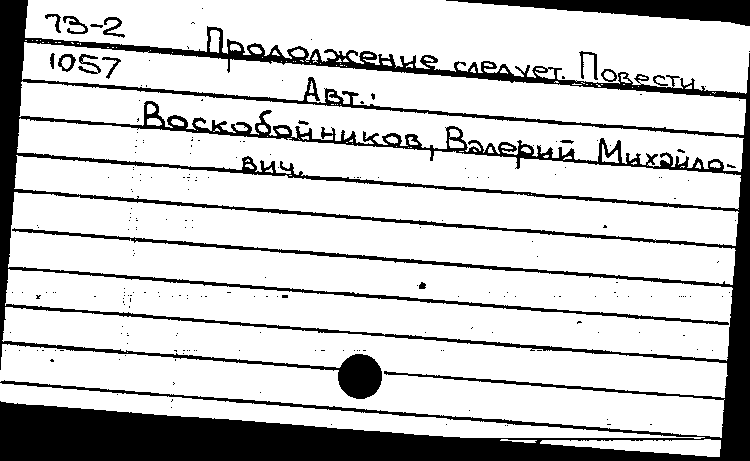 73-2 Продолжение следует. Повести.
1057 Авт.:
Воскобойников, Валерий Михайло-
вич.